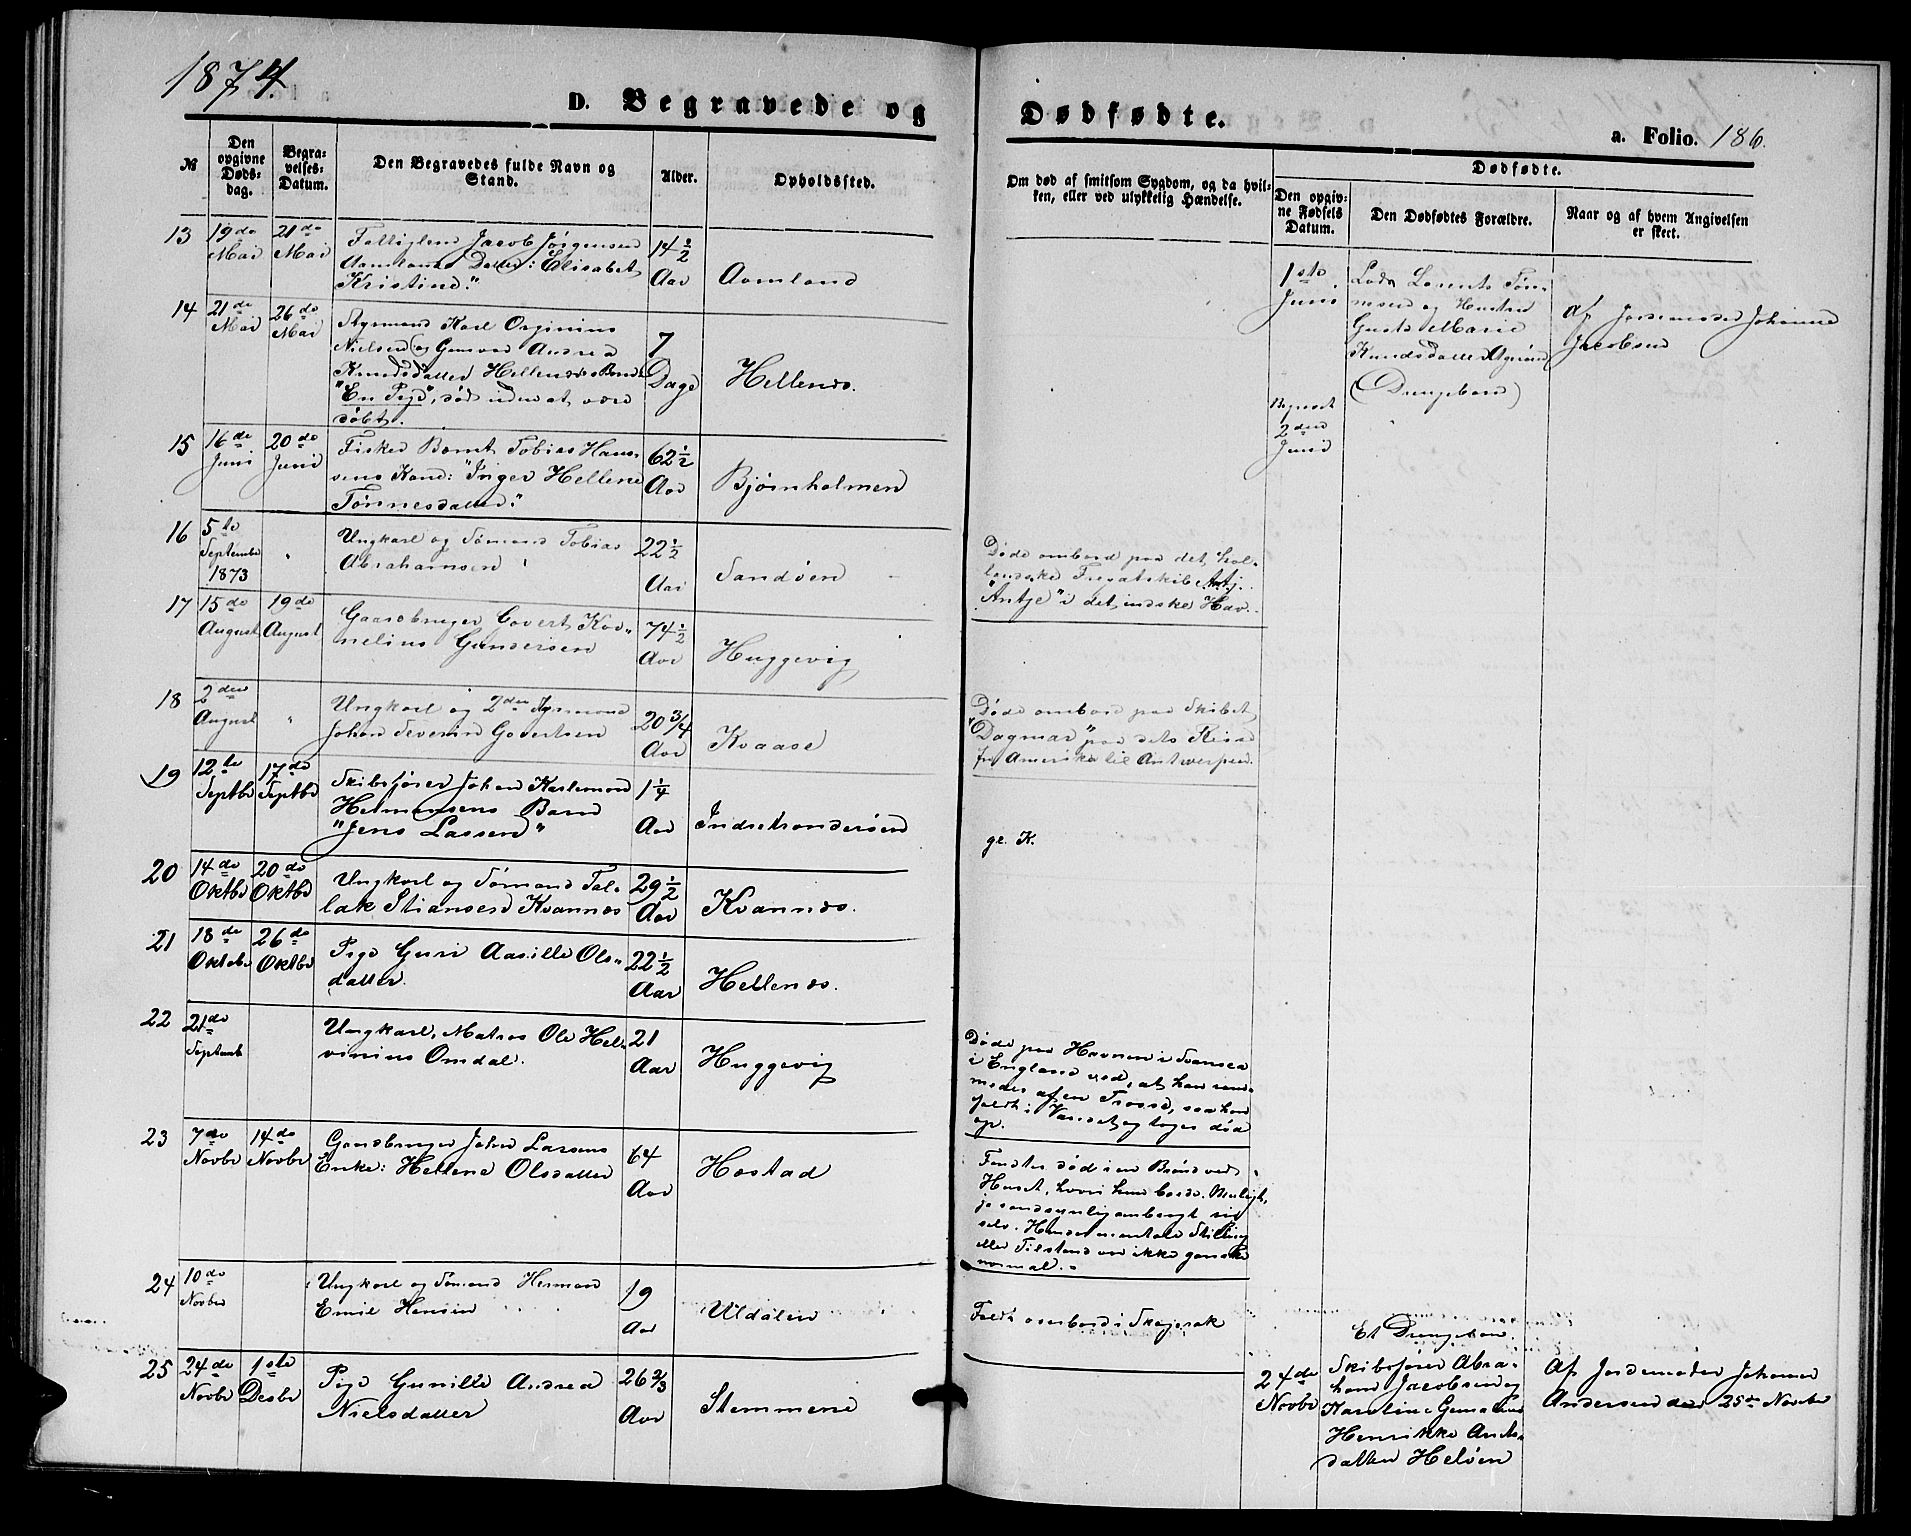 1874.
D. Begravede og Dødfødte.
a. Folio. 186.
№
Den opgivne Døds-dag.
Begra-velses-Datum.
Den Begravedes fulde Navn og Stand.
Alder.
Opholdssted.
Om død af smitsom Sygdom, og da hvil-ken, eller ved ulykkelig Hændelse.
Dødfødte.
Den opgiv-ne Fødsels Datum.
Den Dødfødtes Forældre.
Naar og af hvem Angivelsen er skeet.
13 19de Mai 21de Mai
Fattiglem Jacob Jørgensen
Aamlands Datter: Elisabet
Kristine."
14 1/2 Aar
Aamland
1ste Juni
Lods Lorents Tøn-
nesen og Hustru
Gusta Marie
Knudsdatter
(Drengebarn)
Af Jordemoder Johanne
Jacobsen
Begravet
2den
Juni
14 21de Mai 26de Mai
Styrmand Karl
Nielsen og Andrea
Knudsdatter Hellenæs Barn:
"En Pige", død uden at være
døbt.
7 Dage
Hellenæs.
15 16de Juni 20de Juni
Fisker Bernt Tobias Han-
sens Kone: "Inger Hellene
Tønnesdatter."
62 1/2 Aar
Bjørnholmen
16 5te Septembr 1873 "
Ungkarl og Sømand Tobias
Abrahamsen
22 1/2 Aar
Sandøen
Døde ombord paa det hol-
landske Fregatskib
"Antje" i det indske Hav.
17 15de August 19de August
Gaardbruger Govert Kor-
nelius Gundersen
74 1/2 Aar
Huggevig
18 2den August "
Ungkarl og 2den Styrmand
Johan Severin Govertsen
20 3/4 Aar
Kvaase
Døde ombord paa Skibet
"Dagmar" paa dets Reise
fra Amerika til Antwerpen.
19 12te Septbr 17de Septbr
Skibsfører Johan
Hermansens Barn
"Jens Lassen"
1 1/4 Aar
Indretranderøen
gl. K.
20 14de Oktbr 20de Oktbr
Ungkarl og Sømand Tal-
lak Stiansen Kvannes
29 1/2 Aar
Kvannæs.
21 18de Oktobr 26de Oktbr
Pige Guri Aasille Ols-
datter.
22 1/2 Aar
Hellenæs.
22 21de Septemb
Ungkarl, Matros Ole Hel-
vinius Omdal.
21 Aar
Huggevig
Døde paa Havnen i Svansea
i England ved, at han ram-
medes af en Trosse, saa han
faldt i Vandet og toges død
op.
23 7de Novbr 14de Novbr
Gaardbruger John Larsens
Enke: Hellene Olsdatter
64 Aar
Høstad
Fandtes død i en Brønd ved
Huset, hvori hun boede. Muligt,
ja sandsynlig ombragt sig
selv. Hendes mentale Stilling
eller Tilstand var ikke ganske
normal.
24 10de Novbr
Ungkarl og Sømand Herman
Emil Hansen
19 Aar
Uldalen
Faldt overbord i Skagerak
25 24de Novbr 1ste Desbr
Pige Gunille Andrea
Nielsdatter
26 2/3 Aar
Stemmene
24de Novbr
Et Drengebarn.
Skibsfører Abra-
ham Jacobsen og
Karoline
Henrikke Anders-
datter Heløen
Af Jordemoder Johanne
Andersen den 25de Novbr